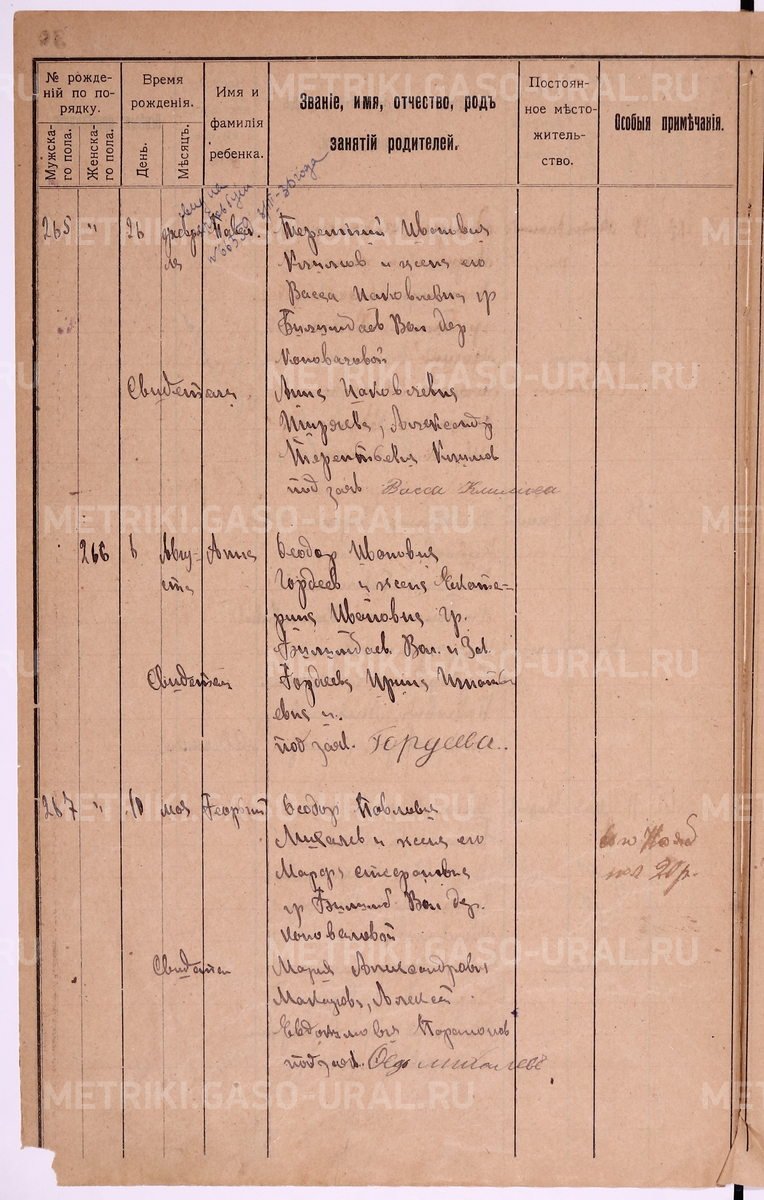 № рожде-
ній по по-
рядку.
Мужска-
го пола.
Женска-
го пола.
Время
рожденія.
День.
Мѣсяцъ.
Имя и
фамилія
ребенка.
Званіе, имя, отчество, родъ
занятій родителей.
Постоян-
ное мѣсто-
житель-
ство.
Особыя примѣчанія.
265 " 26 Павел. Терентий Иванович
Климов и жена его
Васса Яковлевна гр
Билимбаев Вол дер
Коноваловой
Свидетели Анна Яковлевна
Александр
Терентьевич Климов
под заяв Васса Климова
266 6 Авгу- Анна Феодор Иванович
ста Гордеев и жена Екате-
рина Ивановна гр.
Билимбаев. Вол. и Зав.
Свидетел Гордеева Ирина Игнатьевна
под заяв. Гордеева.
267 " 10 мая Георгий Феодор Павлович
Михалев и жена его
Марфа Стефановна
гр Билимб Вол дер.
Коноваловой
Свидетел Мария Александровна
Алексей
Евдокимович Парамонов
под заяв. Фед Михалев
20 р.
METRIKI.GASO-URAL.RU